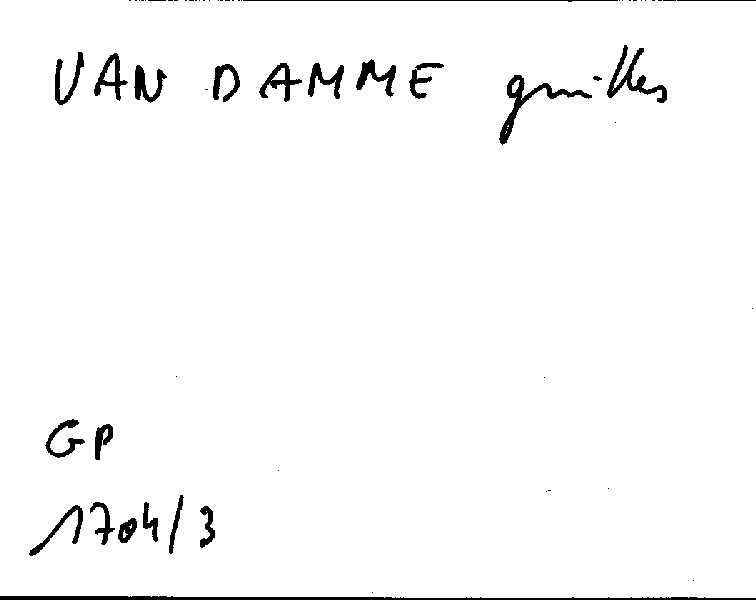 VAN DAMME guilles
GP
1704/3